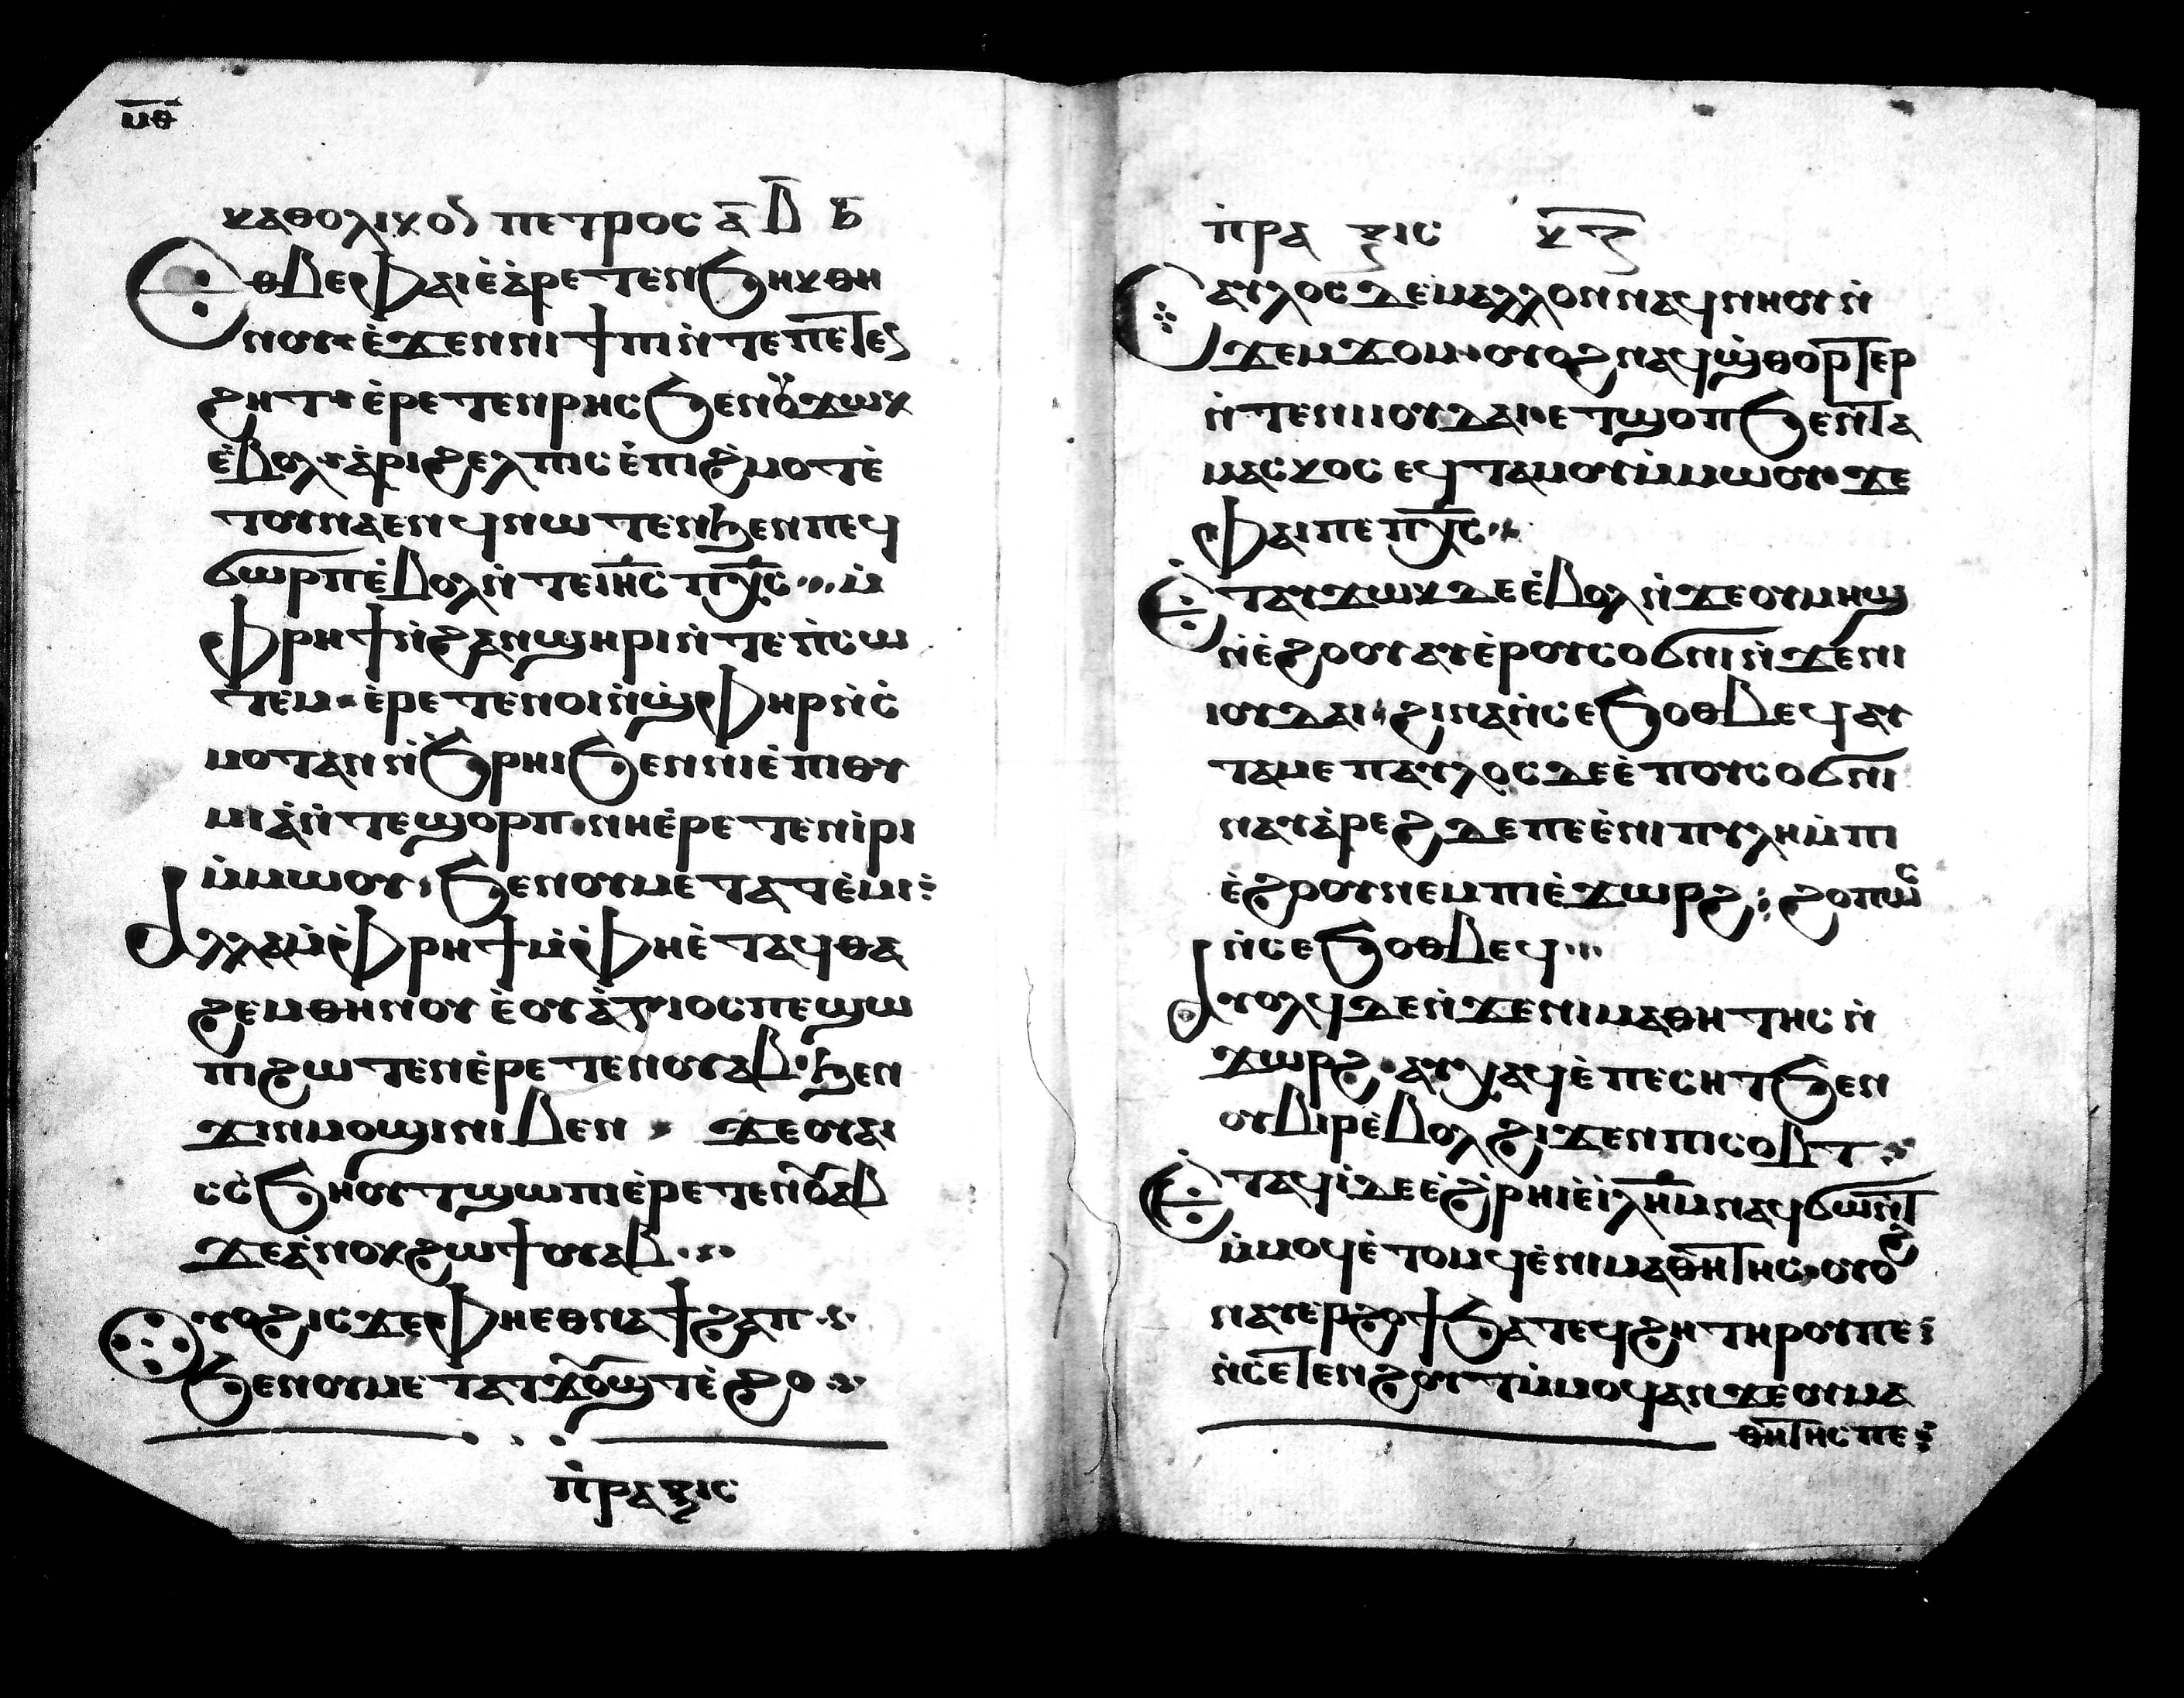 ⲙ̅ⲑ̅
ⲕⲁⲑⲟⲗⲓⲕⲟⲛ ⲡⲉⲧⲣⲟⲥ ⲁ̅ ⲃ̅ ⲋ̅
Ⲉⲑⲃⲉⲫⲁⲓ ⲉ̀ⲁ̀ⲣⲉⲧⲉⲛϧⲏⲕ ⲑⲏ
ⲛⲟⲩ· ⲉ̀ϫⲉⲛ ⲛⲓϯⲡⲓ ⲛ̀ⲧⲉ ⲡⲉⲧⲉⲛ
ϩⲏⲧ· ⲉ̀ⲣⲉⲧⲉⲛⲣⲏⲥ ϧⲉⲛ ⲟⲩϫⲱⲕ
ⲉ̀ⲃⲟⲗ· ⲁ̀ⲣⲓϩⲉⲗⲡⲓⲥ ⲉ̀ⲡⲓϩ̀ⲙⲟⲧ ⲉ̀
ⲧⲟⲩⲛⲁⲉⲛϥ ⲛⲱⲧⲉⲛ ϧⲉⲛ ⲡⲉϥ
ϭⲱⲣⲡ ⲉ̀ⲃⲟⲗ ⲛ̀ⲧⲉ ⲓⲏ̅ⲥ̅ ⲡⲭ̅ⲥ̅ ··· ⲙ̀
ⲫⲣⲏϯ ⲛ̀ϩⲁⲛϣⲏⲣⲓ ⲛ̀ⲧⲉ ⲡ̀ⲥⲱ
ⲧⲉⲙ· ⲉ̀ⲣⲉⲧⲉⲛⲟⲓ ⲛ̀ϣ̀ⲫⲏⲣ ⲛ̀ⲥ̀
ⲙⲟⲧ ⲁⲛ ⲛ̀ϧ̀ⲣⲏⲓ ϧⲉⲛ ⲛⲓⲉ̀ⲡⲓⲑⲩ
ⲙⲓⲁ̀ ⲛ̀ⲧⲉ ϣⲟⲣⲡ· ⲛⲏ ⲉ̀ⲣⲉⲧⲉⲛⲓ̀ⲣⲓ
ⲙ̀ⲙⲱⲟⲩ· ϧⲉⲛ ⲟⲩⲙⲉⲧⲁⲧⲉ̀ⲙⲓ⁝
Ⲁⲗⲗⲁ ⲙ̀ⲫⲣⲏϯ ⲙ̀ⲫⲏ ⲉ̀ⲧⲁϥⲑⲁ
ϩⲉⲙ ⲑⲏⲛⲟⲩ ⲉ̀ⲟⲩⲁ̀ⲅⲓⲟⲥ ⲡⲉ ϣⲱ
ⲡⲓ ϩⲱⲧⲉⲛ ⲉ̀ⲣⲉⲧⲉⲛⲟⲩⲁⲃ· ϧⲉⲛ
ϫⲓⲛⲙⲟϣⲓ ⲛⲓⲃⲉⲛ · ϫⲉ ⲟⲩⲁⲓ
ⲥⲥ̀ϧⲏⲟⲩⲧ ϣⲱⲡⲓ ⲉ̀ⲣⲉⲧⲉⲛⲟⲩⲁⲃ
ϫⲉ ⲁ̀ⲛⲟⲕ ϩⲱ ϯⲟⲩⲁⲃ ···
Ⲟⲩⲟϩ ⲓⲥϫⲉ ⲫⲏ ⲉⲑⲛⲁϯϩⲁⲡ ··
ϧⲉⲛ ⲟⲩⲙⲉⲧⲁⲧϫⲟⲩϣⲧ ⲉ̀ϩⲟ ··
ⲡ̀ⲣⲁⲝⲓⲥ
ⲡ̀ⲣⲁⲝⲓⲥ ⲕ̅ⲍ̅
Ⲥⲁⲩⲗⲟⲥ ⲇⲉ ⲙⲁⲗⲗⲟⲛ ⲛⲁϥⲛⲏⲟⲩ ⲛ̀
ϫⲉⲙϫⲟⲙ· ⲟⲩⲟϩ ⲛⲁϥϣ̀ⲑⲟⲣⲧⲉⲣ
ⲛ̀ⲧⲉ ⲛⲓⲓⲟⲩⲇⲁⲓ ⲉⲧϣⲟⲡ ϧⲉⲛ ⲧⲁ
ⲙⲁⲥⲕⲟⲥ ⲉϥⲧⲁⲙⲟ ⲙ̀ⲙⲱⲟⲩ· ϫⲉ
ⲫⲁⲓ ⲡⲉ ⲡⲭ̅ⲥ̅ ··
Ⲉ̀ⲧⲁⲩϫⲱⲕ ⲇⲉ ⲉ̀ⲃⲟⲗ ⲛ̀ϫⲉ ⲟⲩⲙⲏϣ
ⲛ̀ⲉ̀ϩⲟⲟⲩ ⲁⲩⲉ̀ⲣⲟⲩⲥⲟϭⲛⲓ ⲛ̀ϫⲉ ⲛⲓ
ⲓⲟⲩⲇⲁⲓ· ϩⲓⲛⲁ ⲛ̀ⲥⲉϧⲟⲑⲃⲉϥ ⲁⲩ
ⲧⲁⲙⲉ ⲡⲁⲩⲗⲟⲥ ⲇⲉ ⲉ̀ⲡⲟⲩⲥⲟϭⲛⲓ
ⲛⲁⲩⲁ̀ⲣⲉϩ ⲇⲉ ⲡⲉ ⲉ̀ⲛⲓⲡⲩⲗⲏ ⲙ̀ⲡⲓ
ⲉ̀ϩⲟⲟⲩ ⲛⲉⲙ ⲡⲓⲉ̀ϫⲱⲣϩ⁝ ϩⲟⲡⲱⲥ
ⲛ̀ⲥⲉϧⲟⲑⲃⲉϥ ···
Ⲁⲩⲟⲗϥ ⲇⲉ ⲛ̀ϫⲉ ⲛⲓⲙⲁⲑⲏⲧⲏⲥ ⲛ̀
ϫⲱⲣϩ· ⲁⲩⲭⲁϥ ⲉ̀ⲡⲉⲥⲏⲧ ϧⲉⲛ
ⲟⲩⲃⲓⲣ ⲉ̀ⲃⲟⲗ ϩⲓϫⲉⲛ ⲡⲓⲥⲟⲃⲧ ··
Ⲉ̀ⲧⲁϥⲓ̀ ⲇⲉ ⲉ̀ϩ̀ⲣⲏⲓ ⲉ̀ⲓ̀ⲗ̅ⲏ̅ⲙ̅ ⲛⲁϥϭⲱⲛⲧ
ⲙ̀ⲙⲟϥ ⲉ̀ⲧⲟⲙϥ ⲉ̀ⲛⲓⲙⲁⲑⲏⲧⲏⲥ· ⲟⲩⲟϩ
ⲛⲁⲩⲉⲣϩⲟϯ ϧⲁⲧⲉϥϩⲏ ⲧⲏⲣⲟⲩ ⲡⲉ⁝
ⲛ̀ⲥⲉⲧⲉⲛϩⲟⲩⲧ ⲙ̀ⲙⲟϥ ⲁⲛ ϫⲉ ⲟⲩⲙⲁ
ⲑⲏⲧⲏⲥ ⲡⲉ⁝